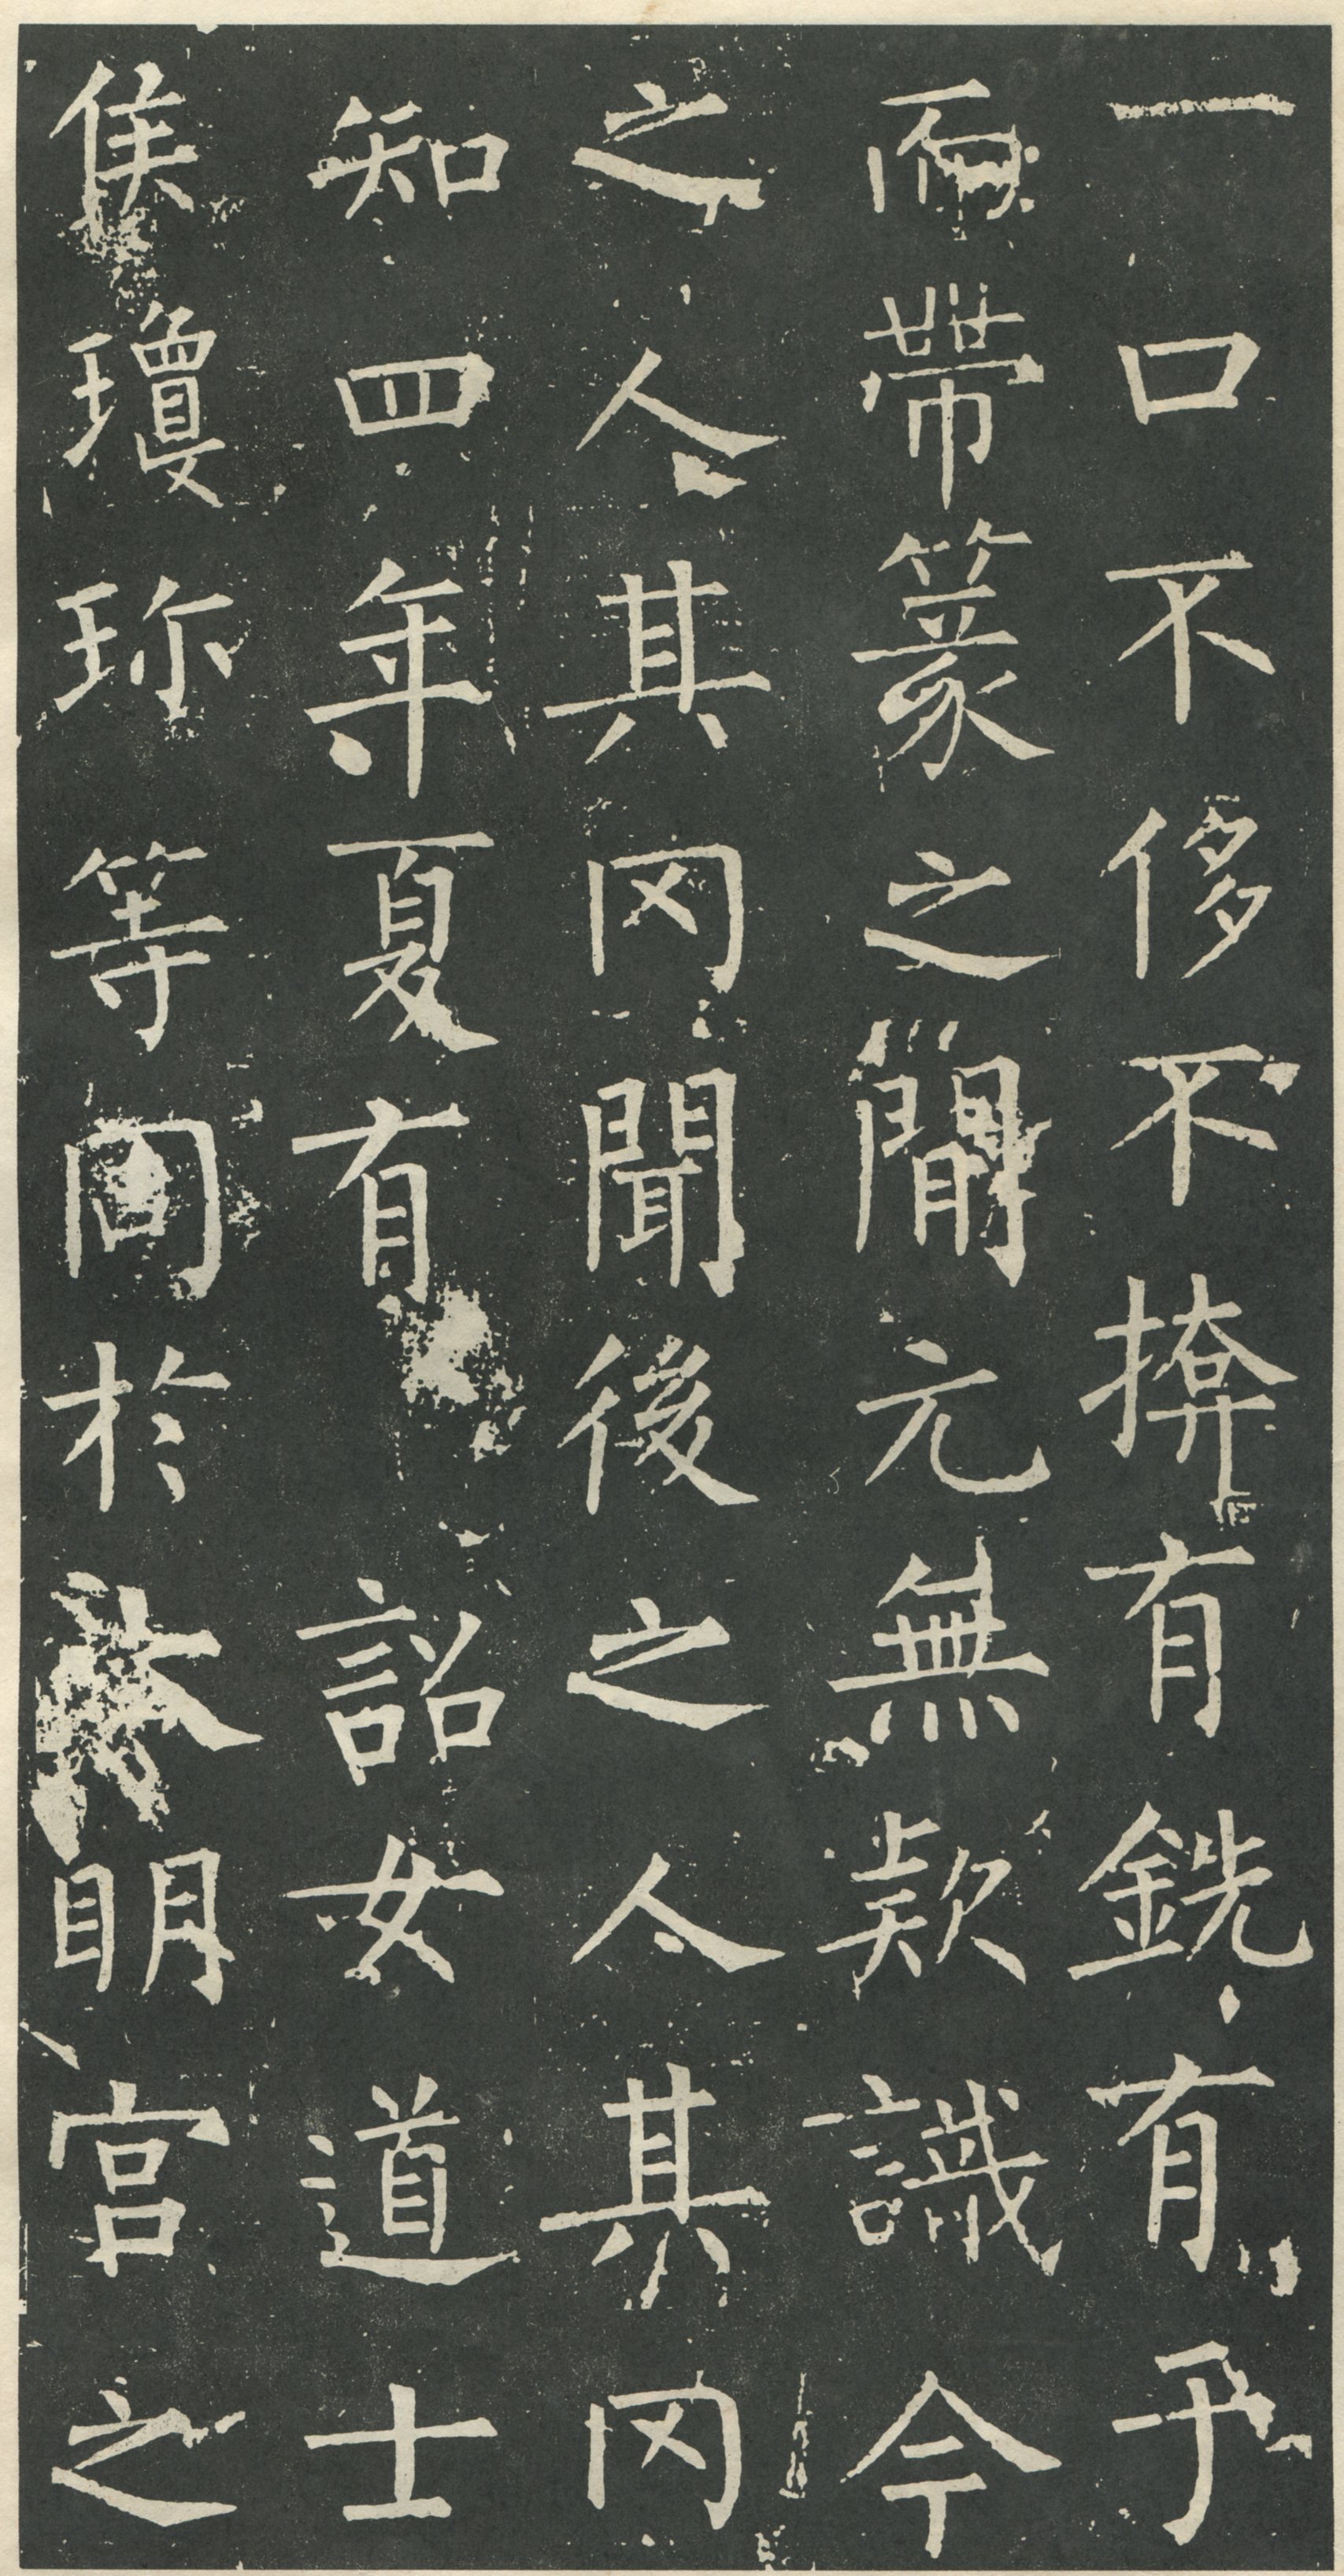 一口不侈不揜有銑有于
而帶篆之間元無款識今
之人其罔聞後之人其罔
知四年夏有詔女道士
侯瓊珍等同於大明宮之